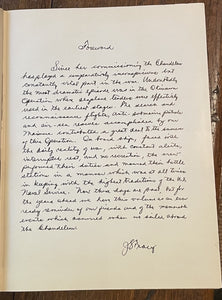 Foreword
Since her commissioning the Chandeleur
has played a comparatively inconspicuous but
constantly vital part in the war. Undoubtedly
the most dramatic episode was in the Okinawa
Operation when seaplane tenders were effectively
used in the earliest stages. The search and
reconnaissance flights, anti-submarine patrols
and air sea rescue accomplished by our
Mariners contributed a great deal to the success
of this Operation. On board ship, faced with
the daily reality of war, with constant alerts,
interrupted rest, and no recreation, the crew
performed their duties and manned their battle
stations in a manner which was at all times
in keeping with the highest traditions of the U.S.
Naval Service. Now those days are past, but for
the years which we have this volume is an ever
ready reminder of our friends and of the memorable
events which occurred when we sailed aboard
the Chandeleur.